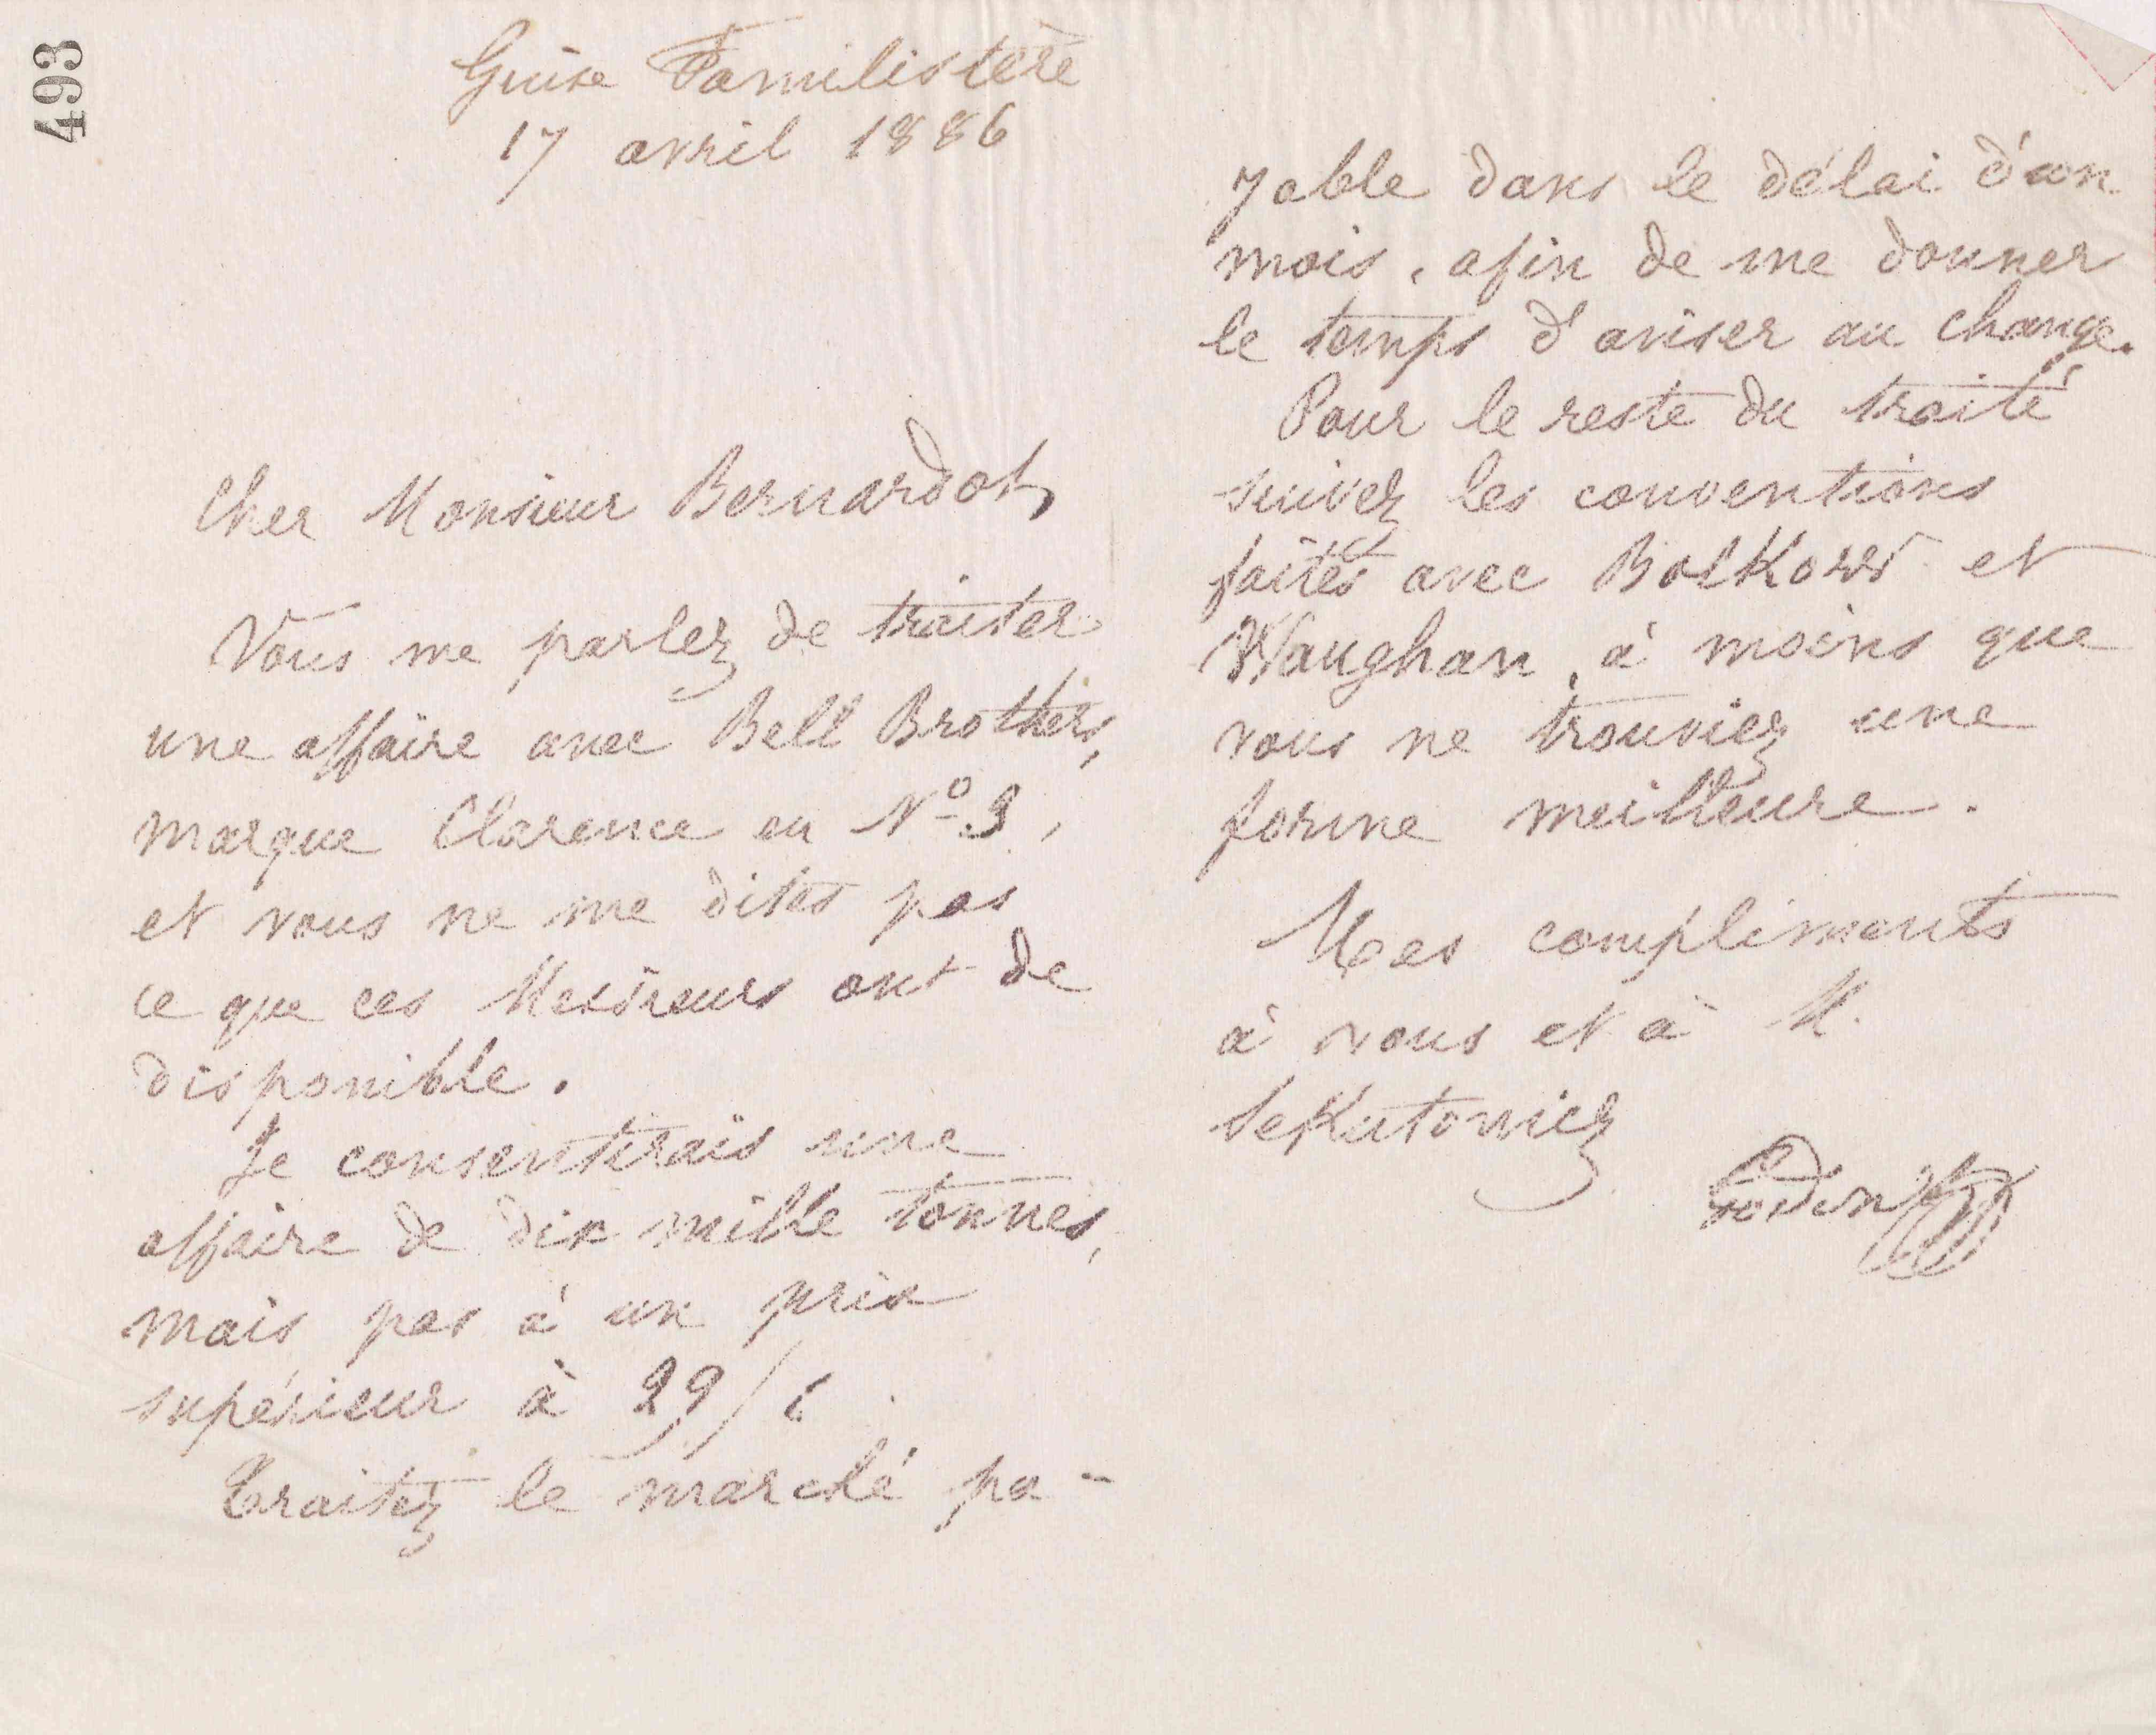 493
Guise Familistère
17 avril 1886
Cher Monsieur Bernardot,
Vous me parlez de traiter
une affaire avec Bell Brothers,
marque Clarence en Nº 3,
et vous ne me dites pas
ce que ces Messieurs ont de
disponible.
Je consentirais une
affaire de dix mille tonnes,
mais pas à un prix
supérieur à 29/6.
Traitez le marché pa-
yable dans le délai d'un
mois, afin de me donner
le temps d'aviser au change.
Pour le reste du traité
suivez les conventions
faites avec Bolkows et
Waughan, à moins que
vous ne trouviez une
forme meilleure.
Mes compliments
à vous et à M.
Sekutowicz
Godin